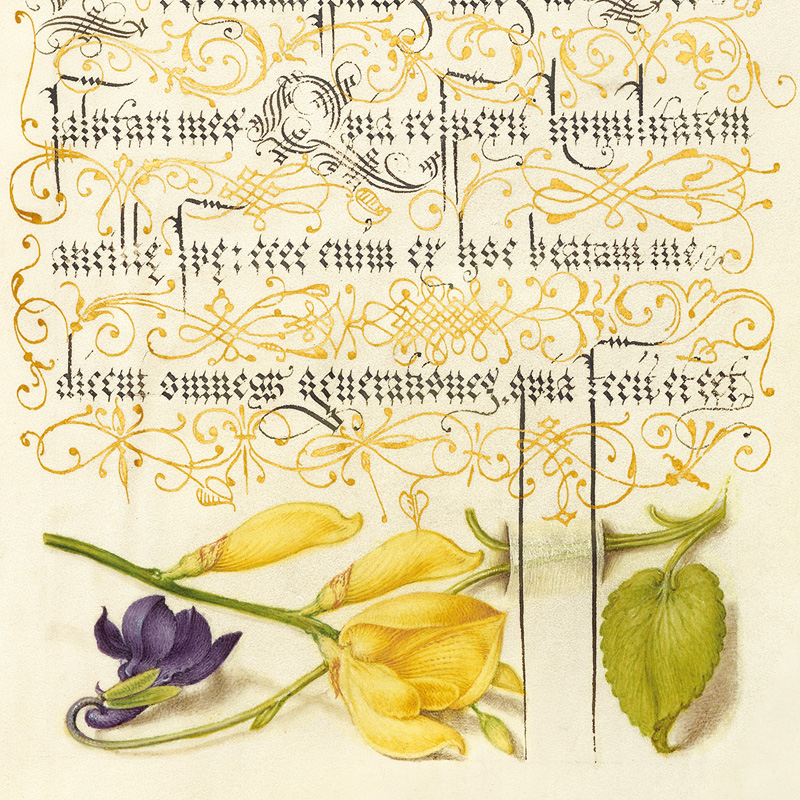 salutari meo Quia respexit humilitatem
ancillę suę: ecce enim ex hoc beatam me
dicent omnes generationes, quia fecit